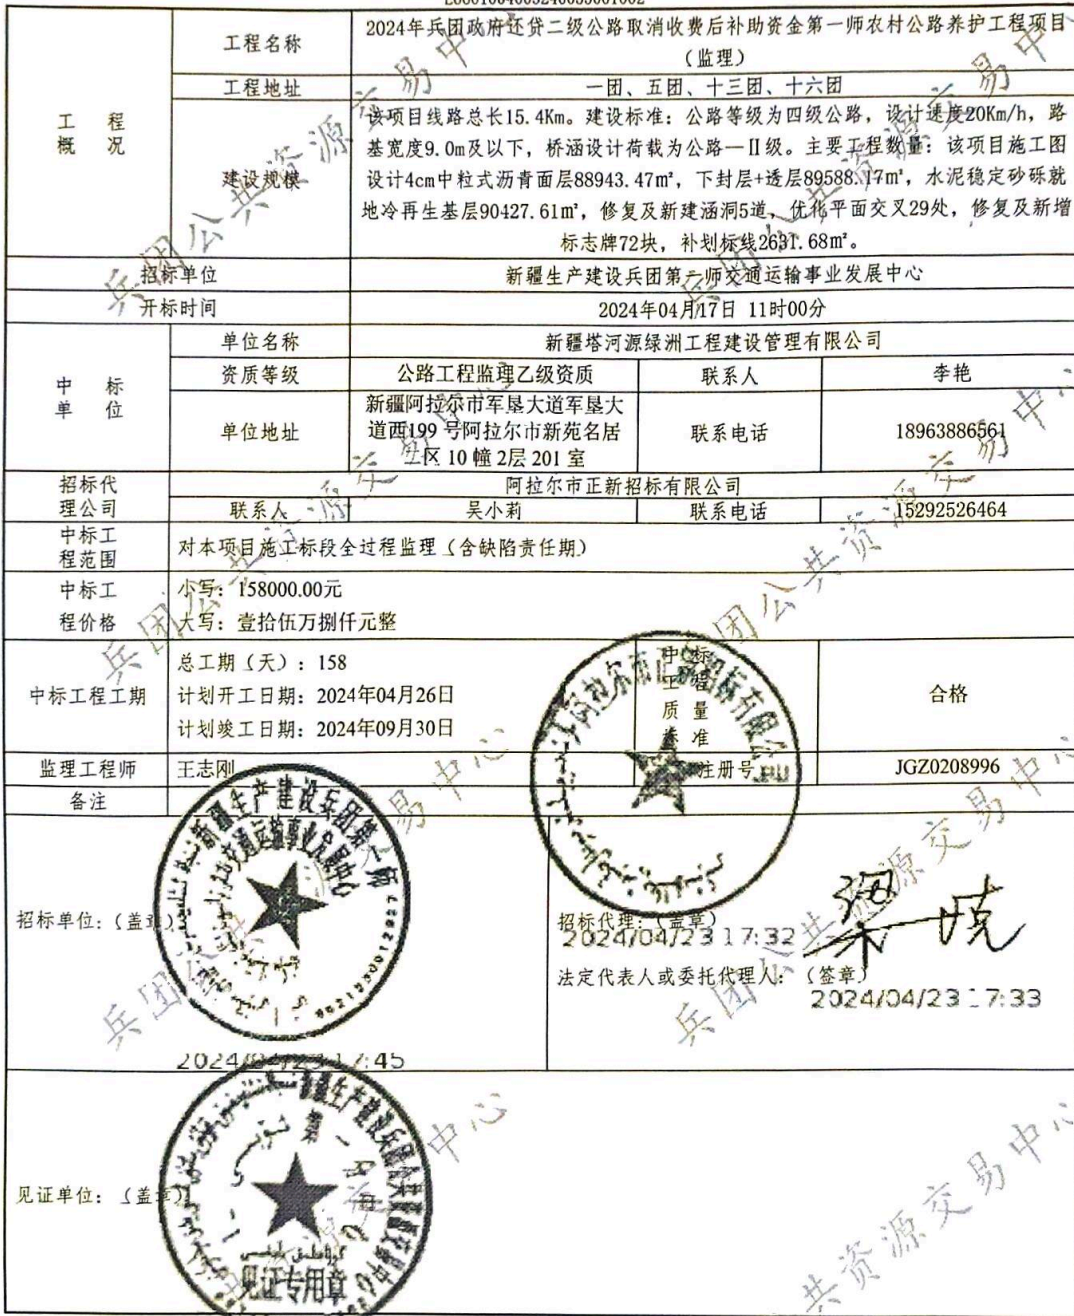 工程概况
工程名称
2024年兵团政府还贷二级公路取消收费后补助资金第一师农村公路养护工程项目
（监理）
工程地址
一团、五团、十三团、十六团
建设规模
该项目线路总长15.4Km。建设标准：公路等级为四级公路，设计速度20Km/h，路
基宽度9.0m及以下，桥涵设计荷载为公路—Ⅱ级。主要工程数量：该项目施工图
设计4cm中粒式沥青面层88943.47㎡，下封层+透层89588.17㎡，水泥稳定砂砾就
地冷再生基层90427.61㎡，修复及新建涵洞5道，优化平面交叉29处，修复及新增
标志牌72块，补划标线2631.68㎡。
招标单位
新疆生产建设兵团第一师交通运输事业发展中心
开标时间
2024年04月17日 11时00分
中标单位
单位名称
新疆塔河源绿洲工程建设管理有限公司
资质等级
公路工程监理乙级资质
联系人
李艳
单位地址
新疆阿拉尔市军垦大道军垦大
道西199 号阿拉尔市新苑名居
二区 10 幢 2层 201 室
联系电话
18963886561
招标代
理公司
阿拉尔市正新招标有限公司
联系人
吴小莉
联系电话
15292526464
中标工
程范围
对本项目施工标段全过程监理（含缺陷责任期）
中标工
程价格
小写：158000.00元
大写：壹拾伍万捌仟元整
中标工程工期
总工期（天）：158
计划开工日期：2024年04月26日
计划竣工日期：2024年09月30日
中标
工程
质量
标准
合格
监理工程师
王志刚
注册号
JGZ0208996
备注
招标单位：（盖章）
新疆生产建设兵团第一师
交通运输事业发展中心
2024/04/23 17:45
阿拉尔市正新招标有限公司
招标代理：（盖章）
2024/04/23 17:32
法定代表人或委托代理人：（签章）
2024/04/23 17:33
见证单位：（盖章）
见证专用章
兵团公共资源交易中心